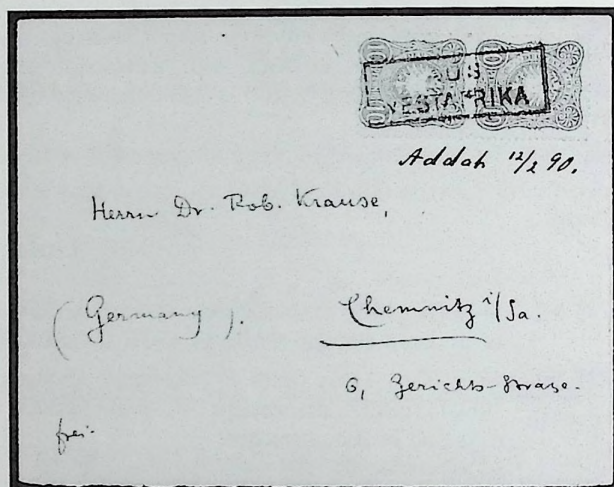 10 10
AUS
WESTAFRIKA
Addah 12/2 90.
Herrn Dr. Rob. Krause,
(Germany). Chemnitz i/Sa.
6, Gerichts-Strasse.
frei.